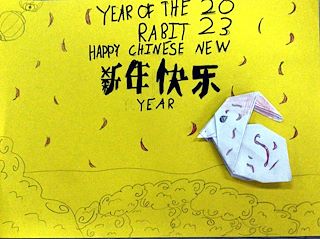 YEAR OF THE 20
RABIT 23
HAPPY CHINESE NEW
新年快乐
YEAR